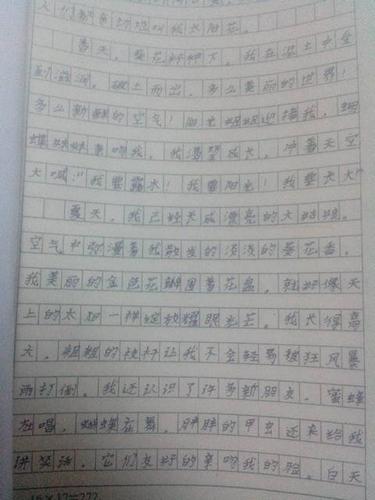 人们都亲切地叫我太阳花。
春天，葵花籽种下，我在泥土中全
破土而出，多么美丽的世界！
多么新鲜的空气！阳光姐姐迎接我，蝴
蝶妹妹亲吻我，我渴望成长，冲着天空
大喊："我要露水！我要阳光！我要长大"
夏天，我已经长成漂亮的大姑娘，
空气中弥漫着我散发的淡淡的葵花香，
我美丽的金色花瓣围着花盘，就好像天
上的太阳一样绽放耀眼光芒，我长得高
大，粗粗的枝杆让我不会轻易被狂风暴
雨打倒，我还认识了许多新朋友，蜜蜂
在唱，蝴蝶在舞，胖胖的甲虫还来给我
讲笑话，它们友好的亲吻我的脸，白天